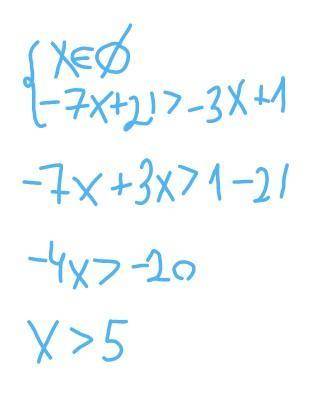 { x∈∅
-7x+21>-3x+1
-7x+3x>1-21
-4x>-20
x>5